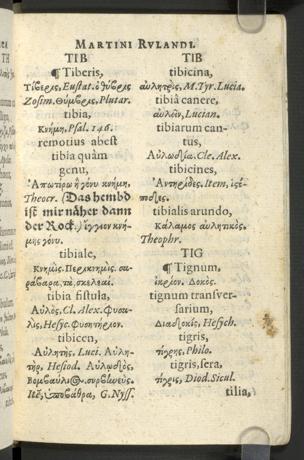 MARTINI RVLANDI.
TIB
¶ Tiberis,
Τίβερις, Eustat. ὁ θύβρις
Zosim. Θύμβρις, Plutar.
tibia,
Κνήμη, Psal. 146.
remotius abest
tibia quàm
genu,
Ἀπωτέρω ἢ γόνυ κνήμη,
Theocr. (Das hembd
ist mir näher dann
der Rock.) ἔγγιον κνή-
μης γόνυ.
tibiale,
Κνημὶς. Περικνημὶς. σα-
ράβαρα. τὰ σκελέαι.
tibia fistula,
Αὐλὸς, Cl. Alex. Φυσα-
λὶς, Hesyc. Φυσητήριον.
tibicen,
Αὐλητὴς, Luci. Αὐλη-
τὴρ, Hesiod. Αὐλωδὸς,
Βομβαύλιος.
Itē, G. Nyss.
TIB
tibicina,
αὐλητρὶς, M. Tyr. Lucia.
tibiâ canere,
αὐλεῖν, Lucian.
tibiarum can-
tus,
Αὐλωδία. Cle. Alex.
tibicines,
Item,
tibialis arundo,
Κάλαμος αὐλητικὸς.
Theophr.
TIG
¶ Tignum,
ἰκρίον. Δοκὸς.
tignum transver-
sarium,
Διαδοκὶς, Hesych.
tigris,
τίγρης, Philo.
tigris, fera,
τίγρις, Diod. Sicul.
tilia,